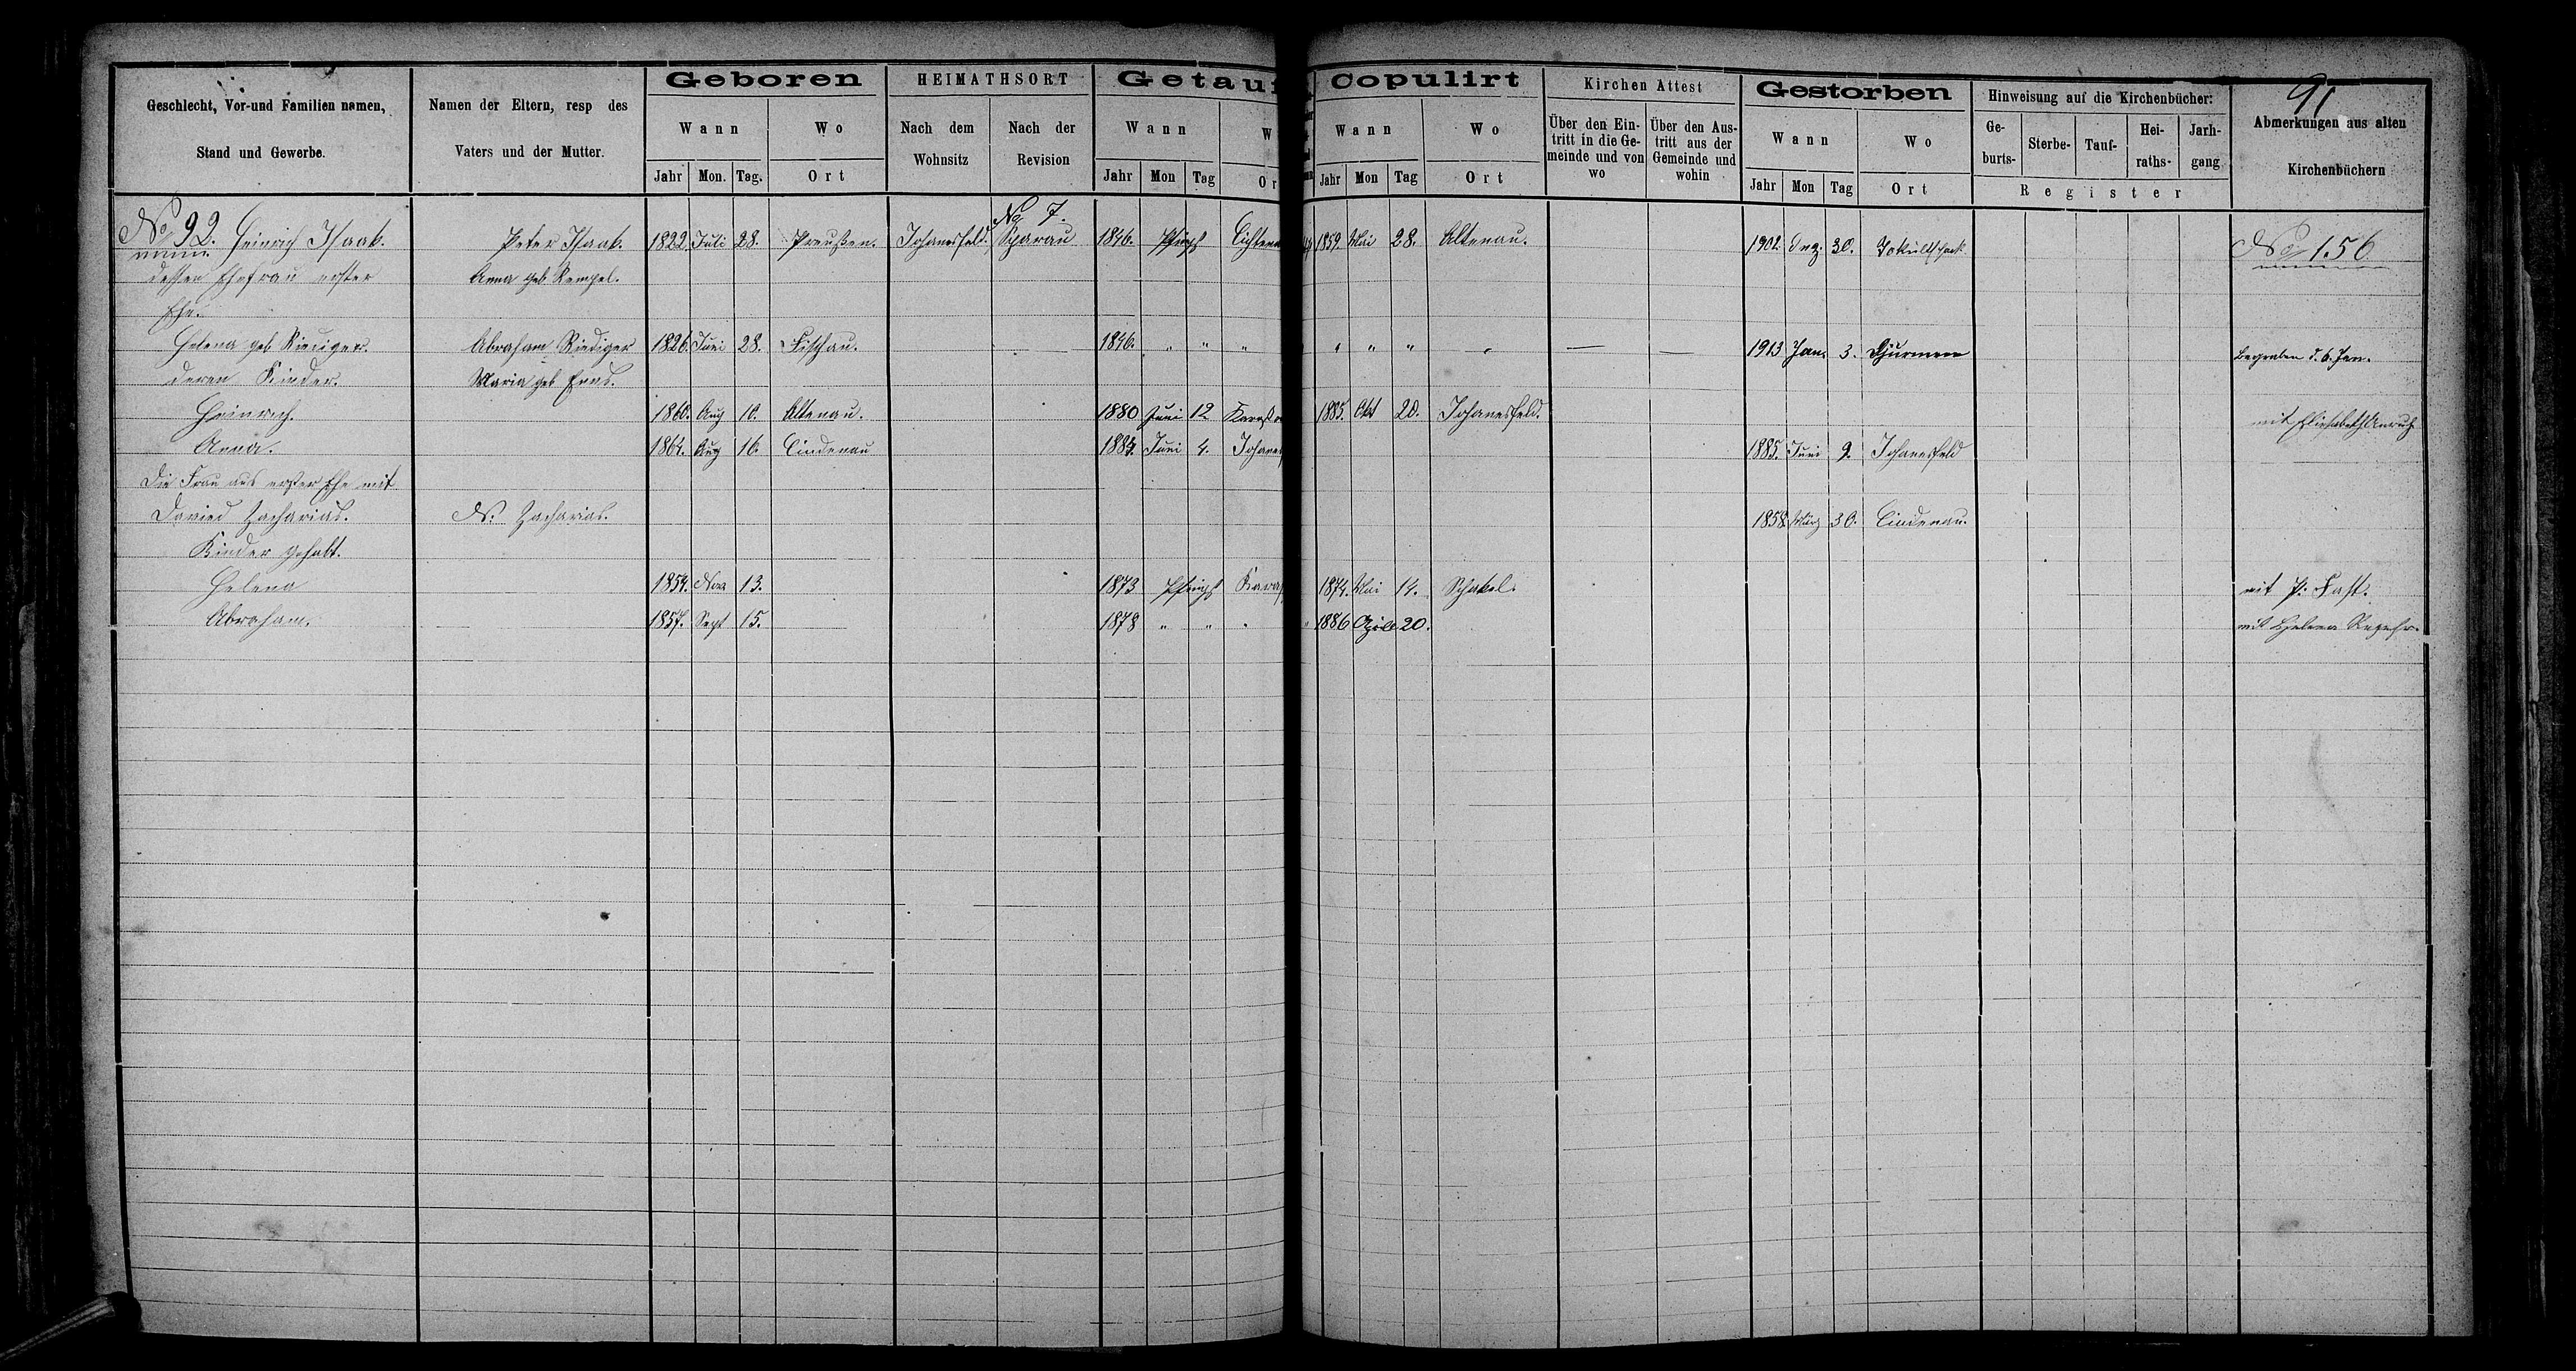 91
Geschlecht, Vor-und Familien namen, Stand und Gewerbe.
Namen der Eltern, resp des Vaters und der Mutter.
Geboren
Wann
Wo
Jahr Mon. Tag. Ort
HEIMATHSORT
Nach dem Wohnsitz
Nach der Revision
Getauf
Wann
W
Jahr Mon Tag Or
Copulirt
Wann
Wo
Jahr Mon Tag Ort
Kirchen Attest
Über den Eintritt in die Gemeinde und von wo
Über den Austritt aus der Gemeinde und wohin
Gestorben
Wann
Wo
Jahr Mon Tag Ort
Hinweisung auf die Kirchenbücher:
Geburts- Sterbe- Tauf- Heiraths- Jarhgang
Register
Abmerkungen aus alten Kirchenbüchern
No 7.
No 92. Heinrich Isaak. Peter Isaak. 1822. Juli 28. Preußen. Johanesfeld. Sparau 1846. Pfingst Lichten 1859. Mai 28. Altenau. 1902. 30. No 156
dessen Ehefrau erster Anna geb. Rempel.
Ehe.
Helena geb. Riediger. Abraham Riediger 1826. Juni 28. Fischau. 1846. " " " " " " " — — 1913 Jan. 3. begraben d. 6. Jan.
deren Kinder. Maria geb. Enns.
Heinrich. 1860. Aug 10. Altenau. 1880 Juni 12 1885. Okt 20. Johanesfeld. mit Elisabeth Unruh
Anna. 1864. Aug 16. Lindenau Juni 4. Johanes 1885. Juni 9. Johanesfeld
Die Frau aus erster Ehe mit
David Zacharias. N: Zacharias. 1858. März 30. Lindenau.
Kinder gehabt.
Helena 1854. Nov 13. 1873 Pfingst Karas 1874. Mai 14. mit P: Fast.
Abraham. 1857. Sept 15. 1878 " " " 1886 April 20. mit Helena Regehr.